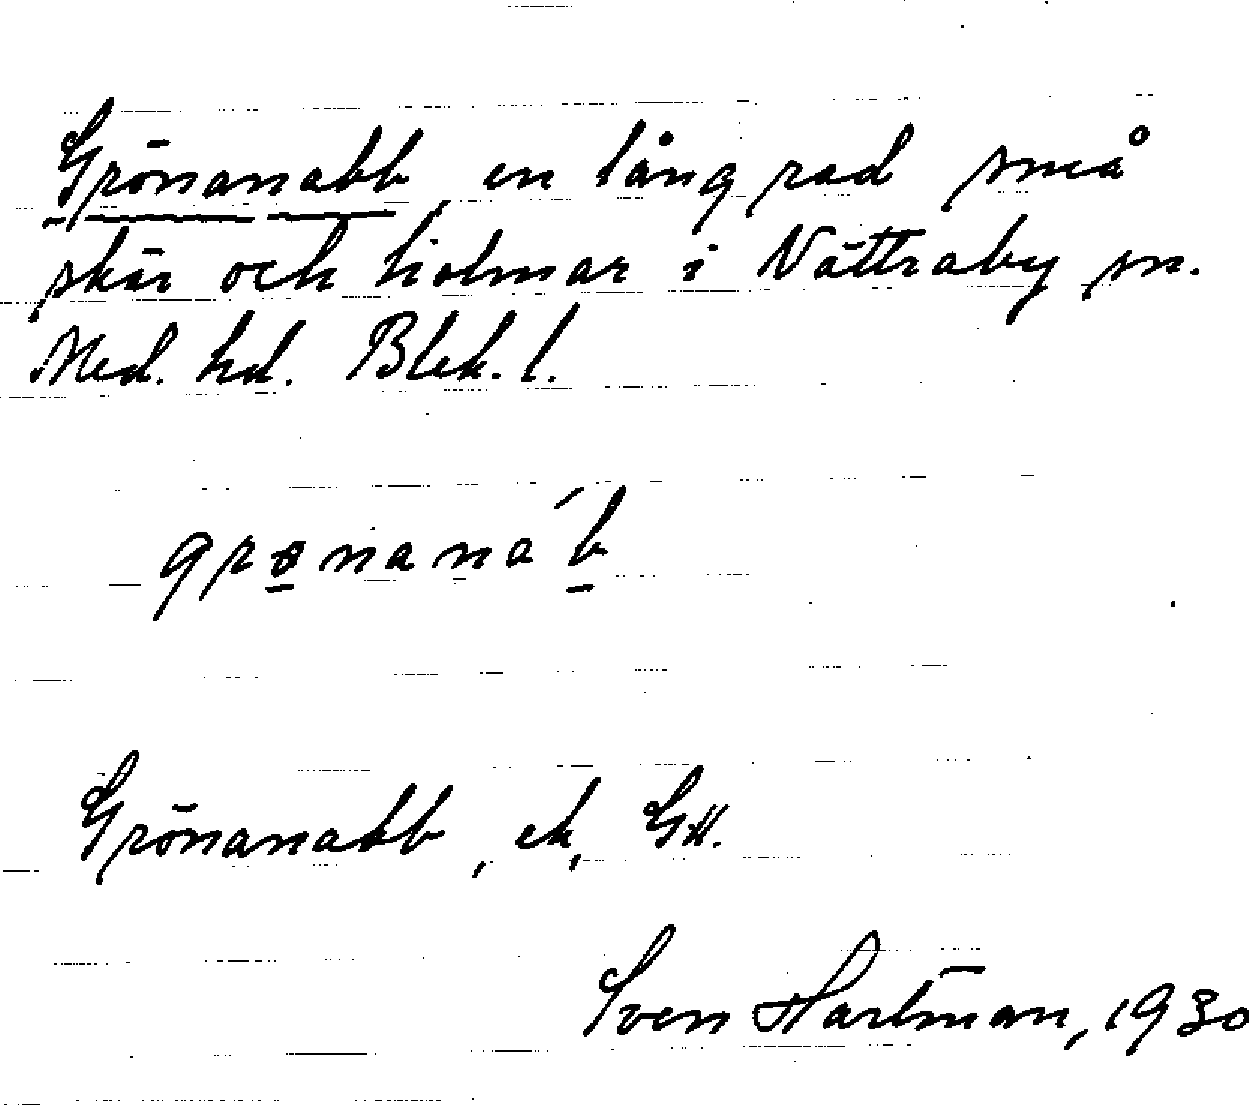 Grönanabb en lång rad små
skär och holmar i Nättraby sn.
Med. hd. Blek. l.
grønanáb
Grönanabb, ek,
Sven Hartman, 1930